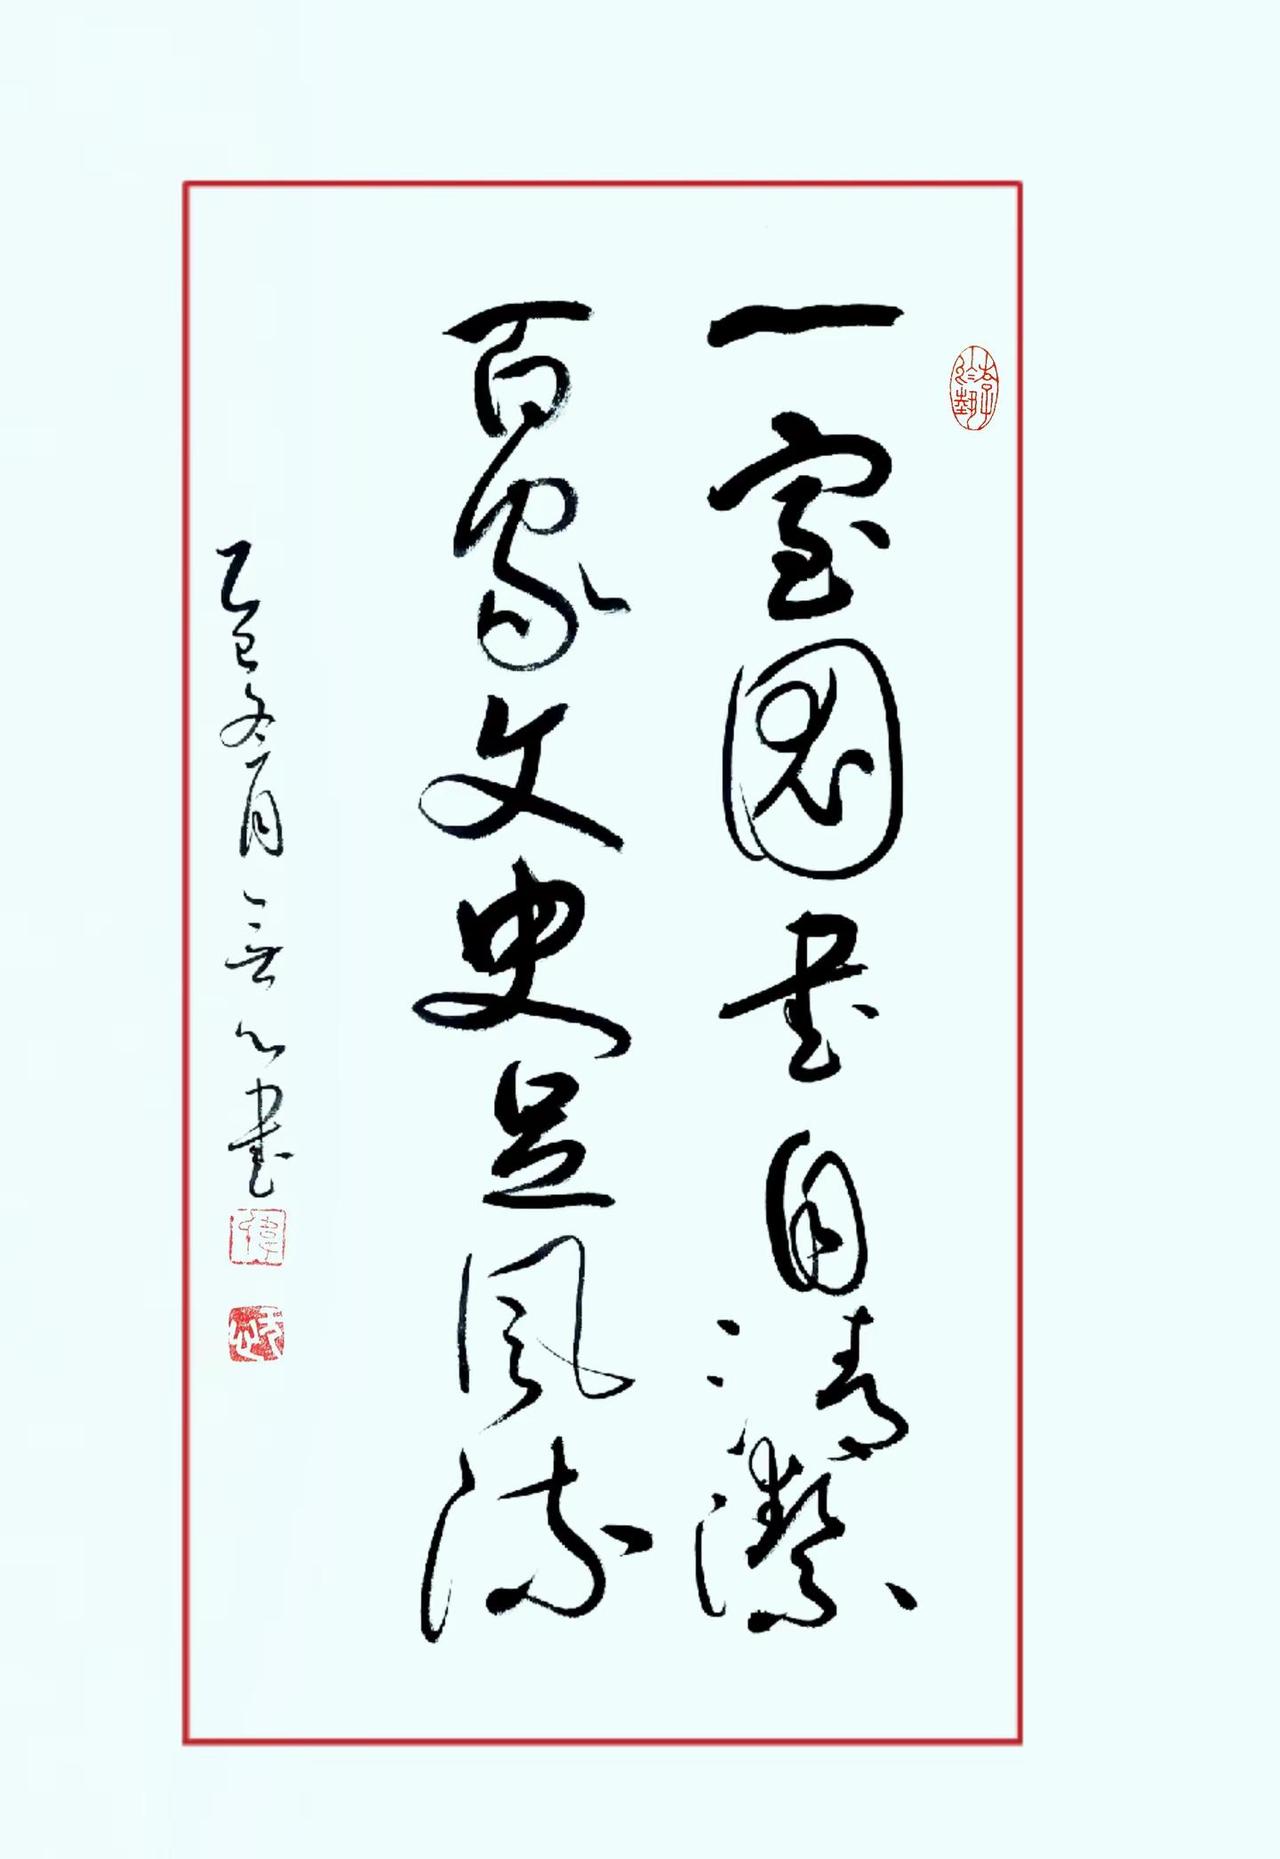 一室图书自清洁
百家文史足风流
乙巳冬月 书